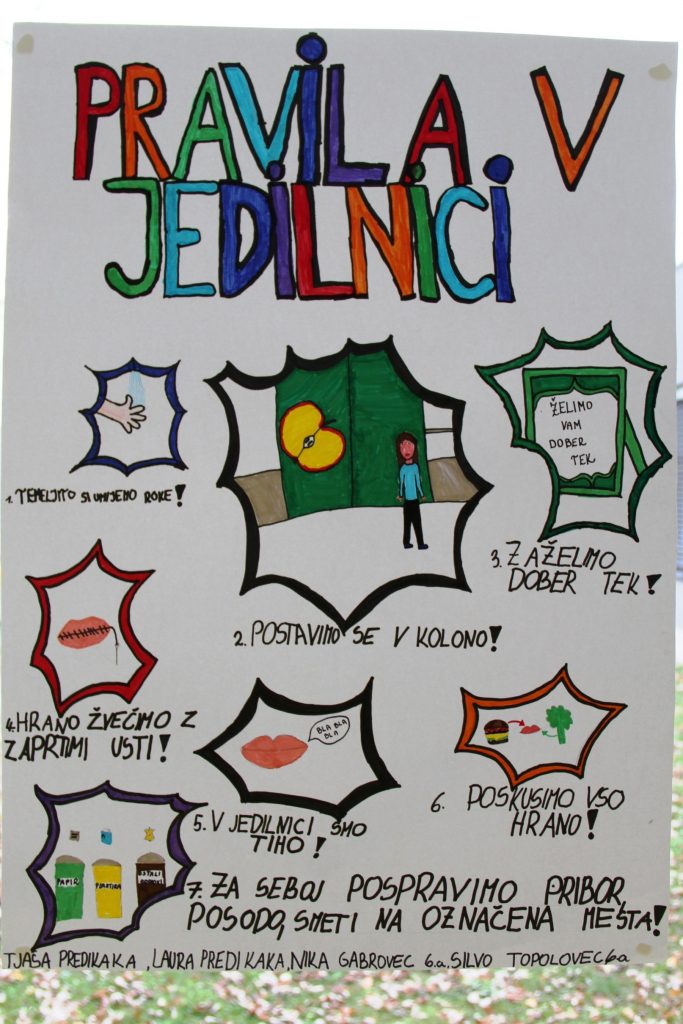 PRAVILA V
JEDILNICI
ŽELIMO
VAM
DOBER
TEK
1. TEMELJITO SI UMIJEMO ROKE!
2. POSTAVIMO SE V KOLONO!
3. ZAŽELIMO
DOBER TEK!
4. HRANO ŽVEČIMO Z
ZAPRTIMI USTI!
BLA BLA
BLA
5. V JEDILNICI SMO
TIHO!
6. POSKUSIMO VSO
HRANO!
PAPIR
PLASTIKA
OSTALI
ODPADKI
7. ZA SEBOJ POSPRAVIMO PRIBOR,
POSODO, SMETI NA OZNAČENA MESTA!
TJAŠA PREDIKAKA, LAURA PREDIKAKA, NIKA GABROVEC 6.a, SILVO TOPOLOVEC 6a